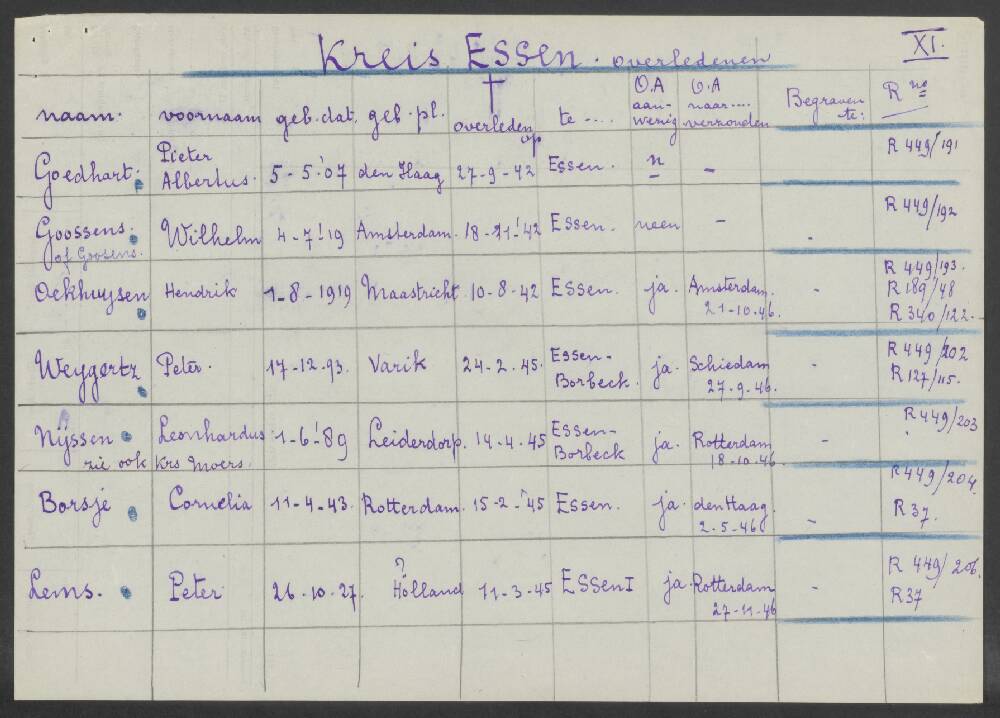 Kreis Essen. overledenen
XI.
naam. voornaam geb. dat. geb. pl. † overleden op te .... O.A aanwezig O.A naar.... verzonden Begraven te: R no
Goedhart. Pieter Albertus. 5-5-'07 den Haag 27-9-42 Essen. n - R 449/191
Goossens. of Goosens. Wilhelm 4-7-'19 Amsterdam. 18-11-'42 Essen. neen - - R 449/192
Oekhuysen Hendrik 1-8-1919 Maastricht 10-8-42 Essen. ja. Amsterdam. 21-10-46. - R 449/193. R 189/48 R 340/122.
Weygertz Peter. 17-12-93. Varik 24-2-45. Essen-Borbeck. ja. Schiedam 27-9-46. - R 449/202 R 127/115.
Nijssen Leonhardus 1-6-'89 Leiderdorp. 14-4-45 Essen-Borbeck ja. Rotterdam 18-10-46. - R 449/203
zie ook Krs Moers.
Borsje Cornelia 11-4-43. Rotterdam. 15-2-'45 Essen. ja. den Haag. 2-5-46 - R 449/204. R 37.
Lems. Peter 26-10-27. ? Holland 11-3-45 Essen I ja. Rotterdam 27-11-46 - R 449/206. R 37